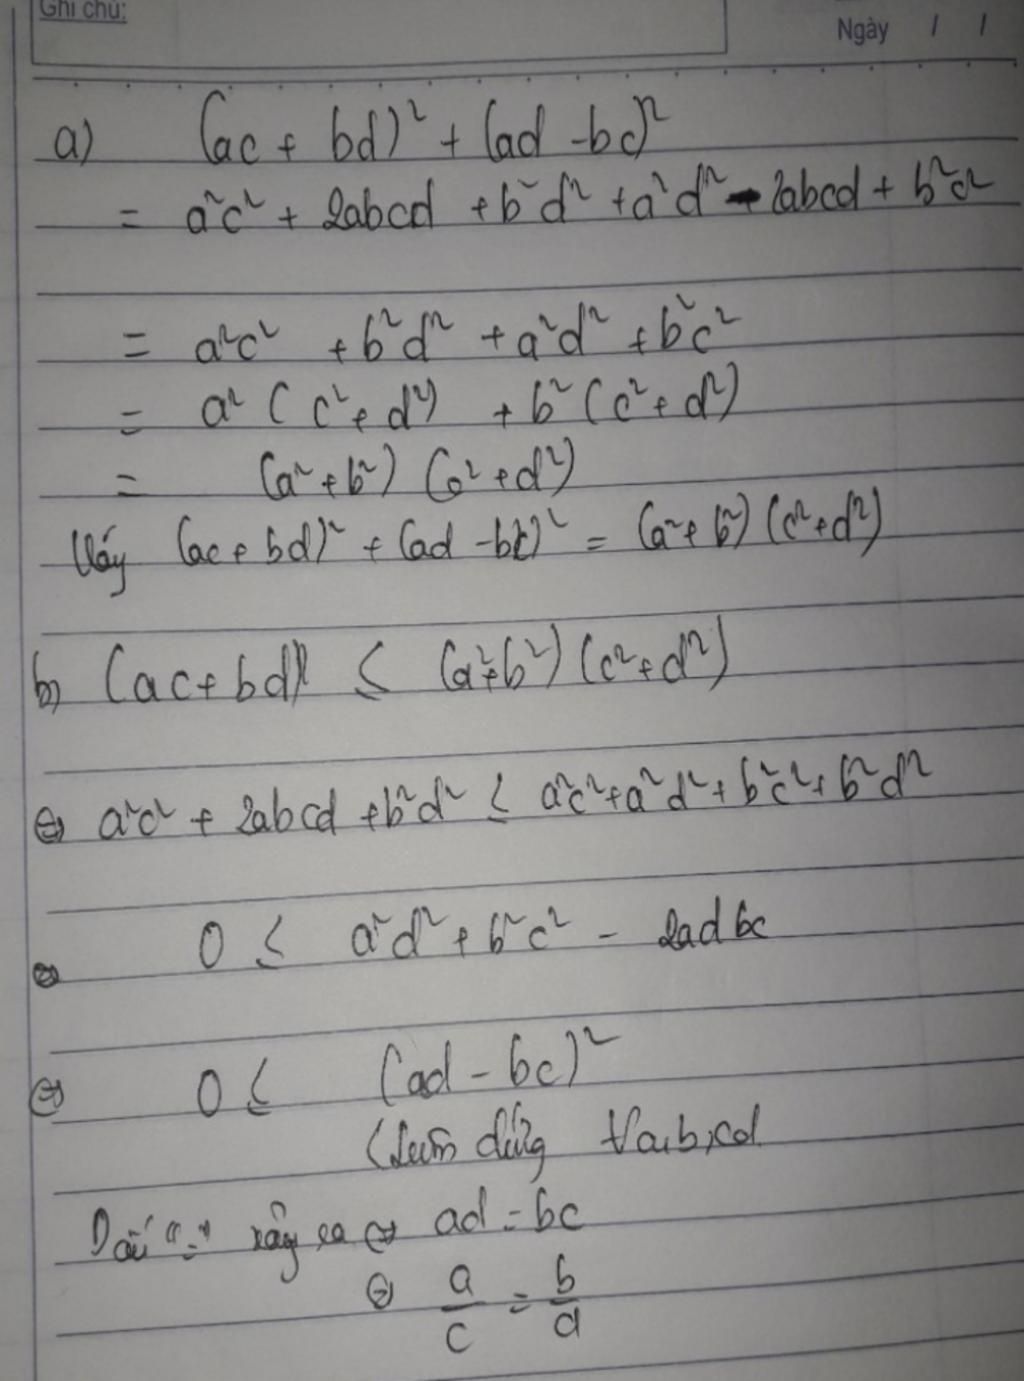 Ghi chú:
Ngày / /
a) (ac + bd)² + (ad - bc)²
= a²c² + 2abcd + b²d² + a²d² - 2abcd + b²c²
= a²c² + b²d² + a²d² + b²c²
= a² (c² + d²) + b² (c² + d²)
= (a² + b²) (c² + d²)
Vậy (ac + bd)² + (ad - bc)² = (a² + b²) (c² + d²)
b) (ac + bd)² ≤ (a² + b²) (c² + d²)
⇔ a²c² + 2abcd + b²d² ≤ a²c² + a²d² + b²c² + b²d²
⇔ 0 ≤ a²d² + b²c² - 2adbc
⇔ 0 ≤ (ad - bc)²
(luôn đúng ∀a,b,c,d
Dấu "=" xảy ra ⇔ ad = bc
⇔ a/c = b/d